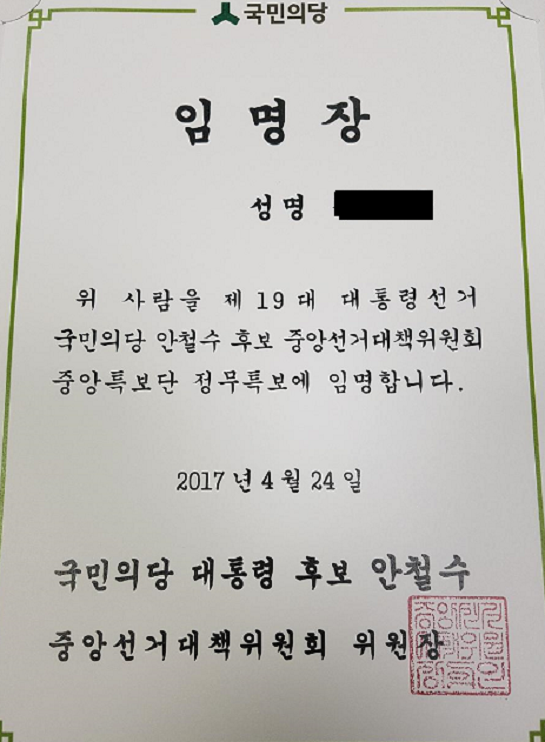 국민의당
임 명 장
성명
위 사람을 제 19 대 대통령선거
국민의당 안철수 후보 중앙선거대책위원회
중앙특보단 정무특보에 임명합니다.
2017 년 4 월 24 일
국민의당 대통령 후보 안철수
중앙선거대책위원회 위원장